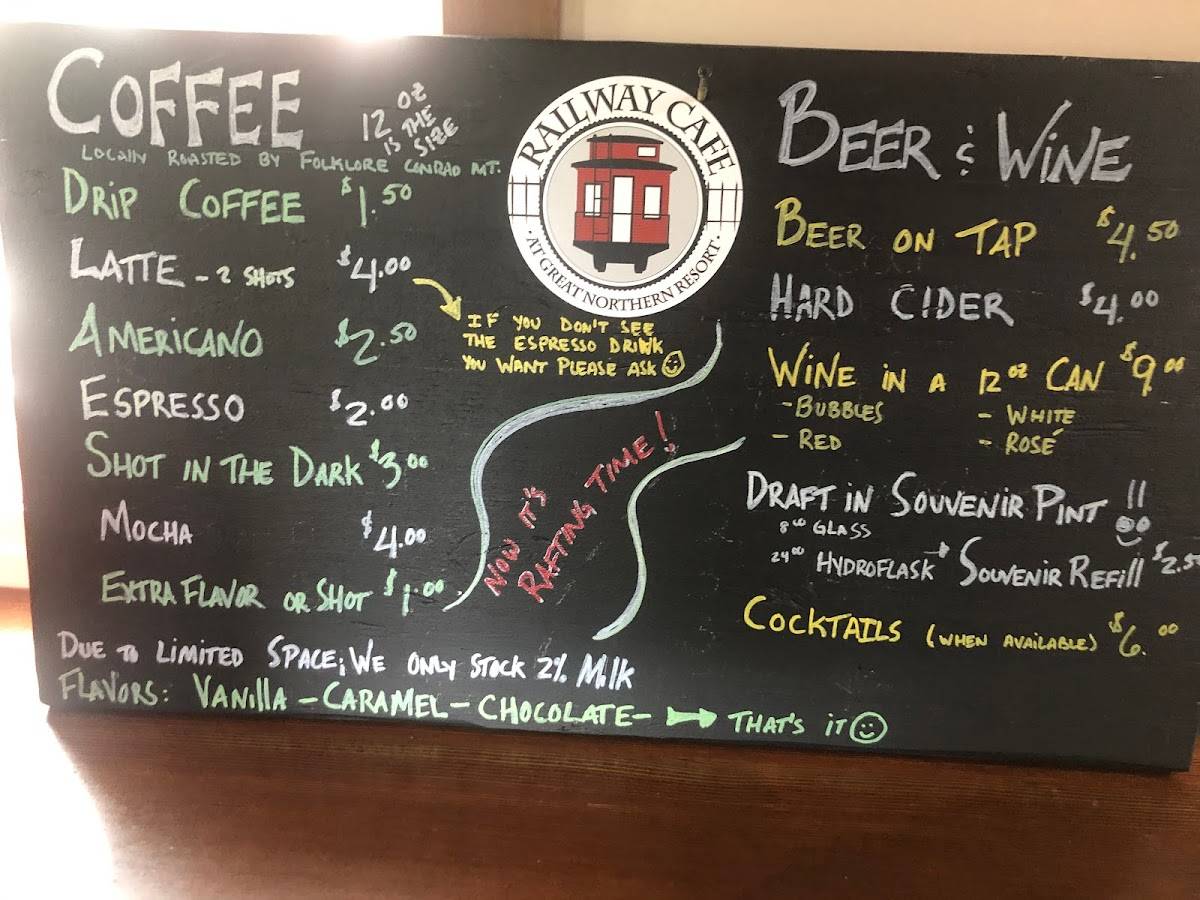 COFFEE
12 OZ
IS THE
SIZE
LOCALLY ROASTED BY FOLKLORE CONRAD MT.
DRIP COFFEE $1.50
LATTE - 2 SHOTS $4.00
AMERICANO $2.50
ESPRESSO $2.00
SHOT IN THE DARK $3.00
MOCHA $4.00
EXTRA FLAVOR OR SHOT $1.00
IF YOU DON'T SEE
THE ESPRESSO DRINK
YOU WANT PLEASE ASK ☺
DUE TO LIMITED SPACE; WE ONLY STOCK 2% MILK
FLAVORS: VANILLA - CARAMEL - CHOCOLATE - → THAT'S IT ☺
RAILWAY CAFE
· AT GREAT NORTHERN RESORT ·
NOW IT'S
RAFTING TIME!
BEER & WINE
BEER ON TAP $4.50
HARD CIDER $4.00
WINE IN A 12 OZ CAN $9.00
- BUBBLES - WHITE
- RED - ROSÉ
DRAFT IN SOUVENIR PINT !!
8.00 GLASS
24.00 HYDROFLASK → SOUVENIR REFILL $2.50
COCKTAILS (WHEN AVAILABLE) $6.00